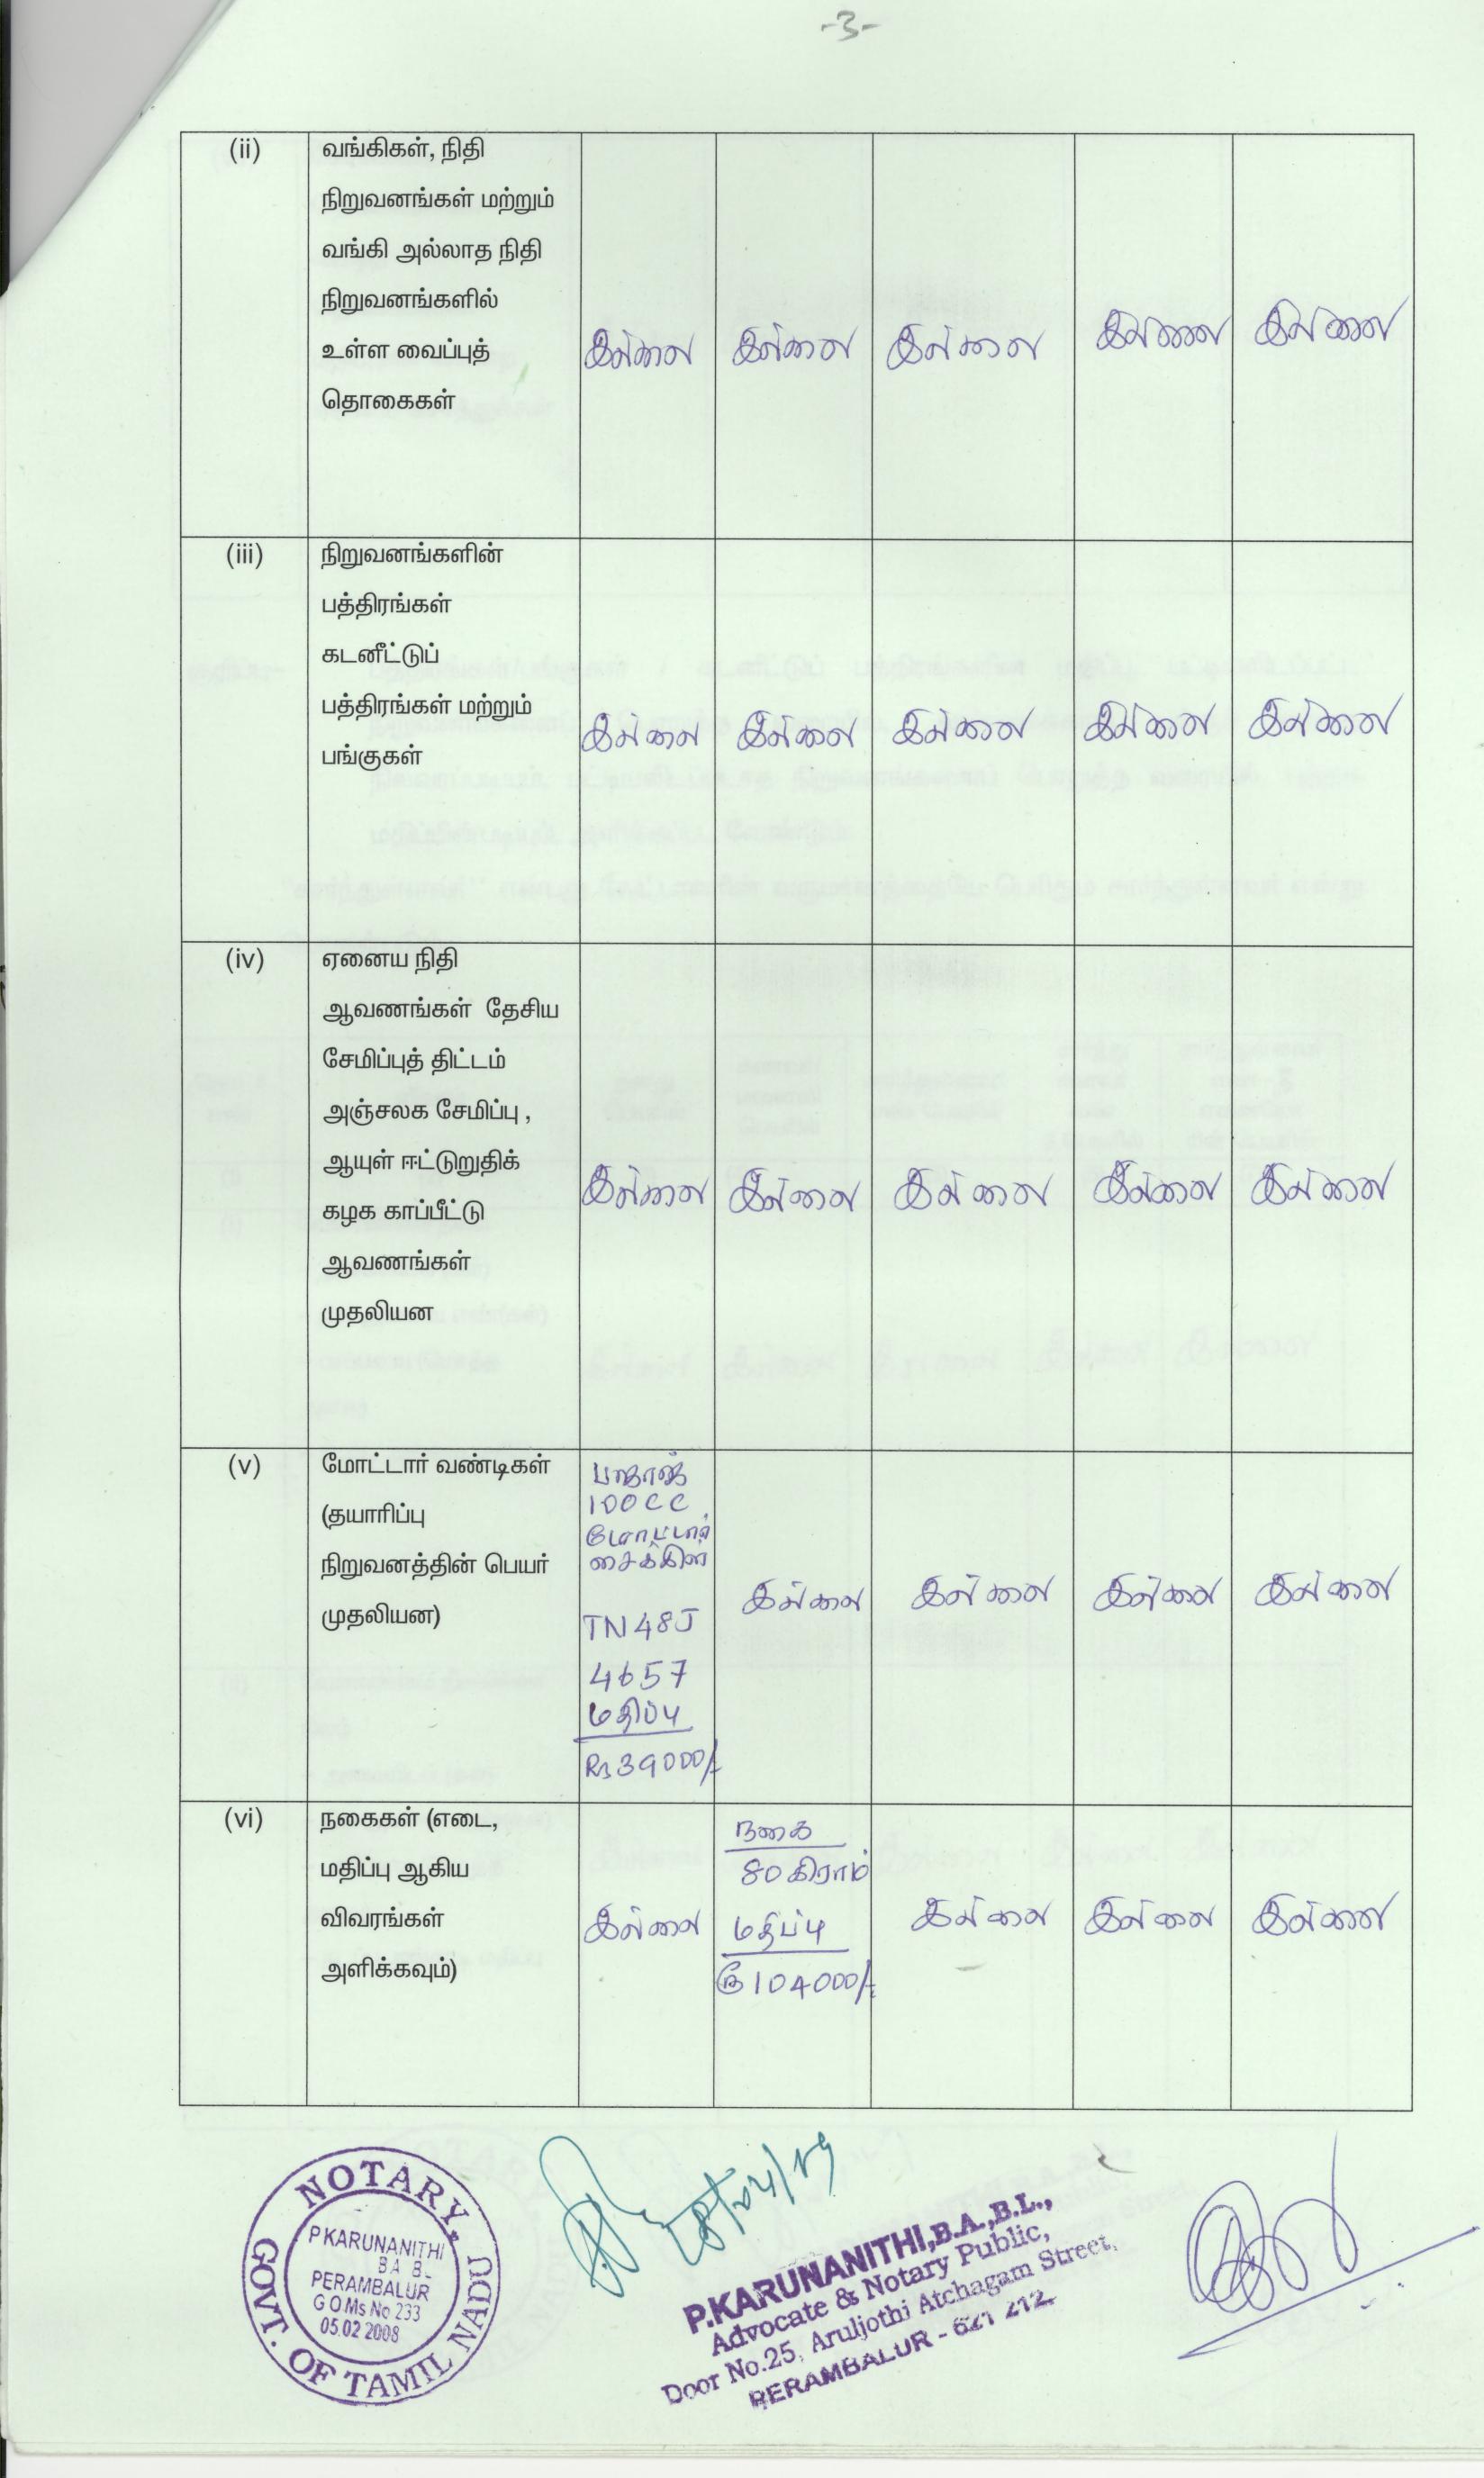 -3-
(ii) வங்கிகள், நிதி
நிறுவனங்கள் மற்றும்
வங்கி அல்லாத நிதி
நிறுவனங்களில்
உள்ள வைப்புத்
தொகைகள்
இல்லை இல்லை இல்லை இல்லை இல்லை
(iii) நிறுவனங்களின்
பத்திரங்கள்
கடனீட்டுப்
பத்திரங்கள் மற்றும்
பங்குகள்
இல்லை இல்லை இல்லை இல்லை இல்லை
(iv) ஏனைய நிதி
ஆவணங்கள் தேசிய
சேமிப்புத் திட்டம்
அஞ்சலக சேமிப்பு ,
ஆயுள் ஈட்டுறுதிக்
கழக காப்பீட்டு
ஆவணங்கள்
முதலியன
இல்லை இல்லை இல்லை இல்லை இல்லை
(v) மோட்டார் வண்டிகள்
(தயாரிப்பு
நிறுவனத்தின் பெயர்
முதலியன)
100CC
மோட்டார்
சைக்கிள்
TN48J
4657
மதிப்பு
Rs39000/-
இல்லை இல்லை இல்லை இல்லை
(vi) நகைகள் (எடை,
மதிப்பு ஆகிய
விவரங்கள்
அளிக்கவும்)
இல்லை
நகை
80 கிராம்
மதிப்பு
ரூ104000/-
இல்லை இல்லை இல்லை
NOTARY
GOVT. OF TAMIL NADU
P KARUNANITHI
B A B L
PERAMBALUR
G O Ms No 233
05.02 2008
P.KARUNANITHI,B.A.,B.L.,
Advocate & Notary Public,
Door No.25, Aruljothi Atchagam Street,
PERAMBALUR - 621 212.